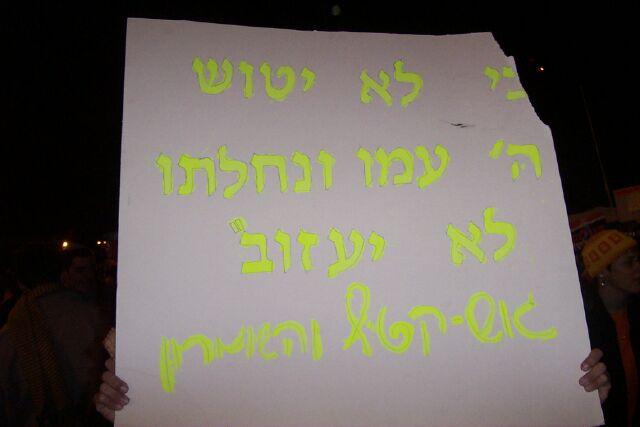 כי לא יטוש
ה' עמו ונחלתו
לא יעזוב"
גוש-קטיף והשומרון